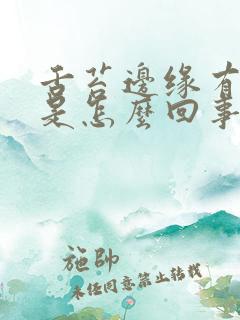 舌苔邊缘有
是怎麼回事
施帥
未经同意禁止转载